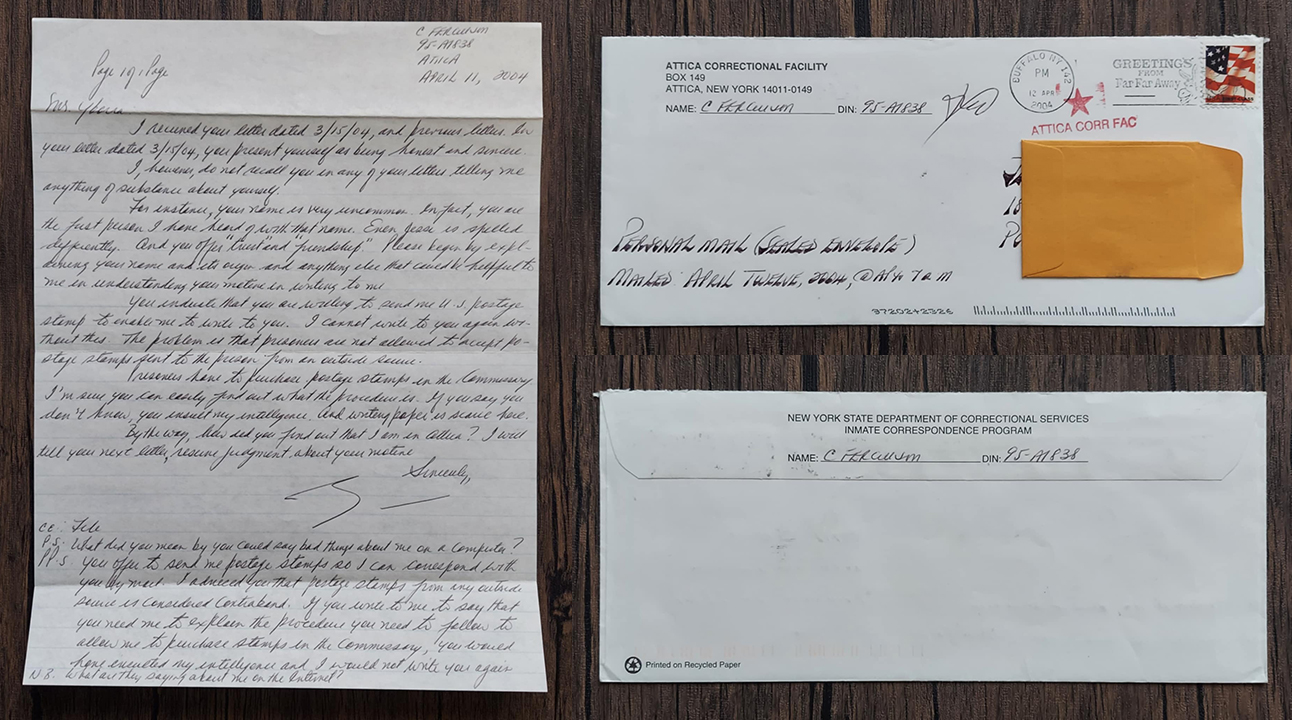 C Ferguson
95-A1838
ATTICA
APRIL 11, 2004
Page 1 of 1 Page
I received your letter dated 3/15/04, and previous letters. In
your letter dated 3/15/04, you present yourself as being honest and sincere.
I, however, do not recall you in any of your letters telling me
anything of substance about yourself.
For instance, your name is very uncommon. In fact, you are
the first person I have heard of with that name. Even Jesse is spelled
differently. And you offer "trust" and "friendship". Please begin by expl-
aining your name and its origin and anything else that could be helpful to
me in understanding your motive in writing to me
You indicate that you are writing to send me U.S. postage
stamp to enable me to write to you. I cannot write to you again wi-
thout this. The problem is that prisoners are not allowed to accept po-
stage stamps sent to the prison from an outside source.
Prisoners have to purchase postage stamps in the Commissary
I'm sure you can easily find out what the procedure is. If you say you
don't know, you insult my intelligence. And writing paper is scarce here.
By the way, how did you find out that I am in Attica? I will
tell you next letter, resume judgment about your motive
Sincerely,
cc: File
P.S. What did you mean by you could say bad things about me on a Computer?
PP.S. You offer to send me postage stamps so I can correspond with
you by mail. I adviced you that postage stamps from any outside
source is considered Contraband. If you write to me to say that
you need me to explain the procedure you need to follow to
allow me to purchase stamps in the Commissary, you would
have insulted my intelligence and I would not write you again
N.B. What are they saying about me on the Internet?
ATTICA CORRECTIONAL FACILITY
BOX 149
ATTICA, NEW YORK 14011-0149
NAME: C Ferguson DIN: 95-A1838
BUFFALO NY 142
PM
12 APR
2004
GREETINGS
FROM
Far Far Away
ATTICA CORR FAC
PERSONAL MAIL (SEALED ENVELOPE)
MAILED APRIL TWELVE, 2004, @ Ap'x 7 a m
9720242326
NEW YORK STATE DEPARTMENT OF CORRECTIONAL SERVICES
INMATE CORRESPONDENCE PROGRAM
NAME: C Ferguson DIN: 95-A1838
Printed on Recycled Paper